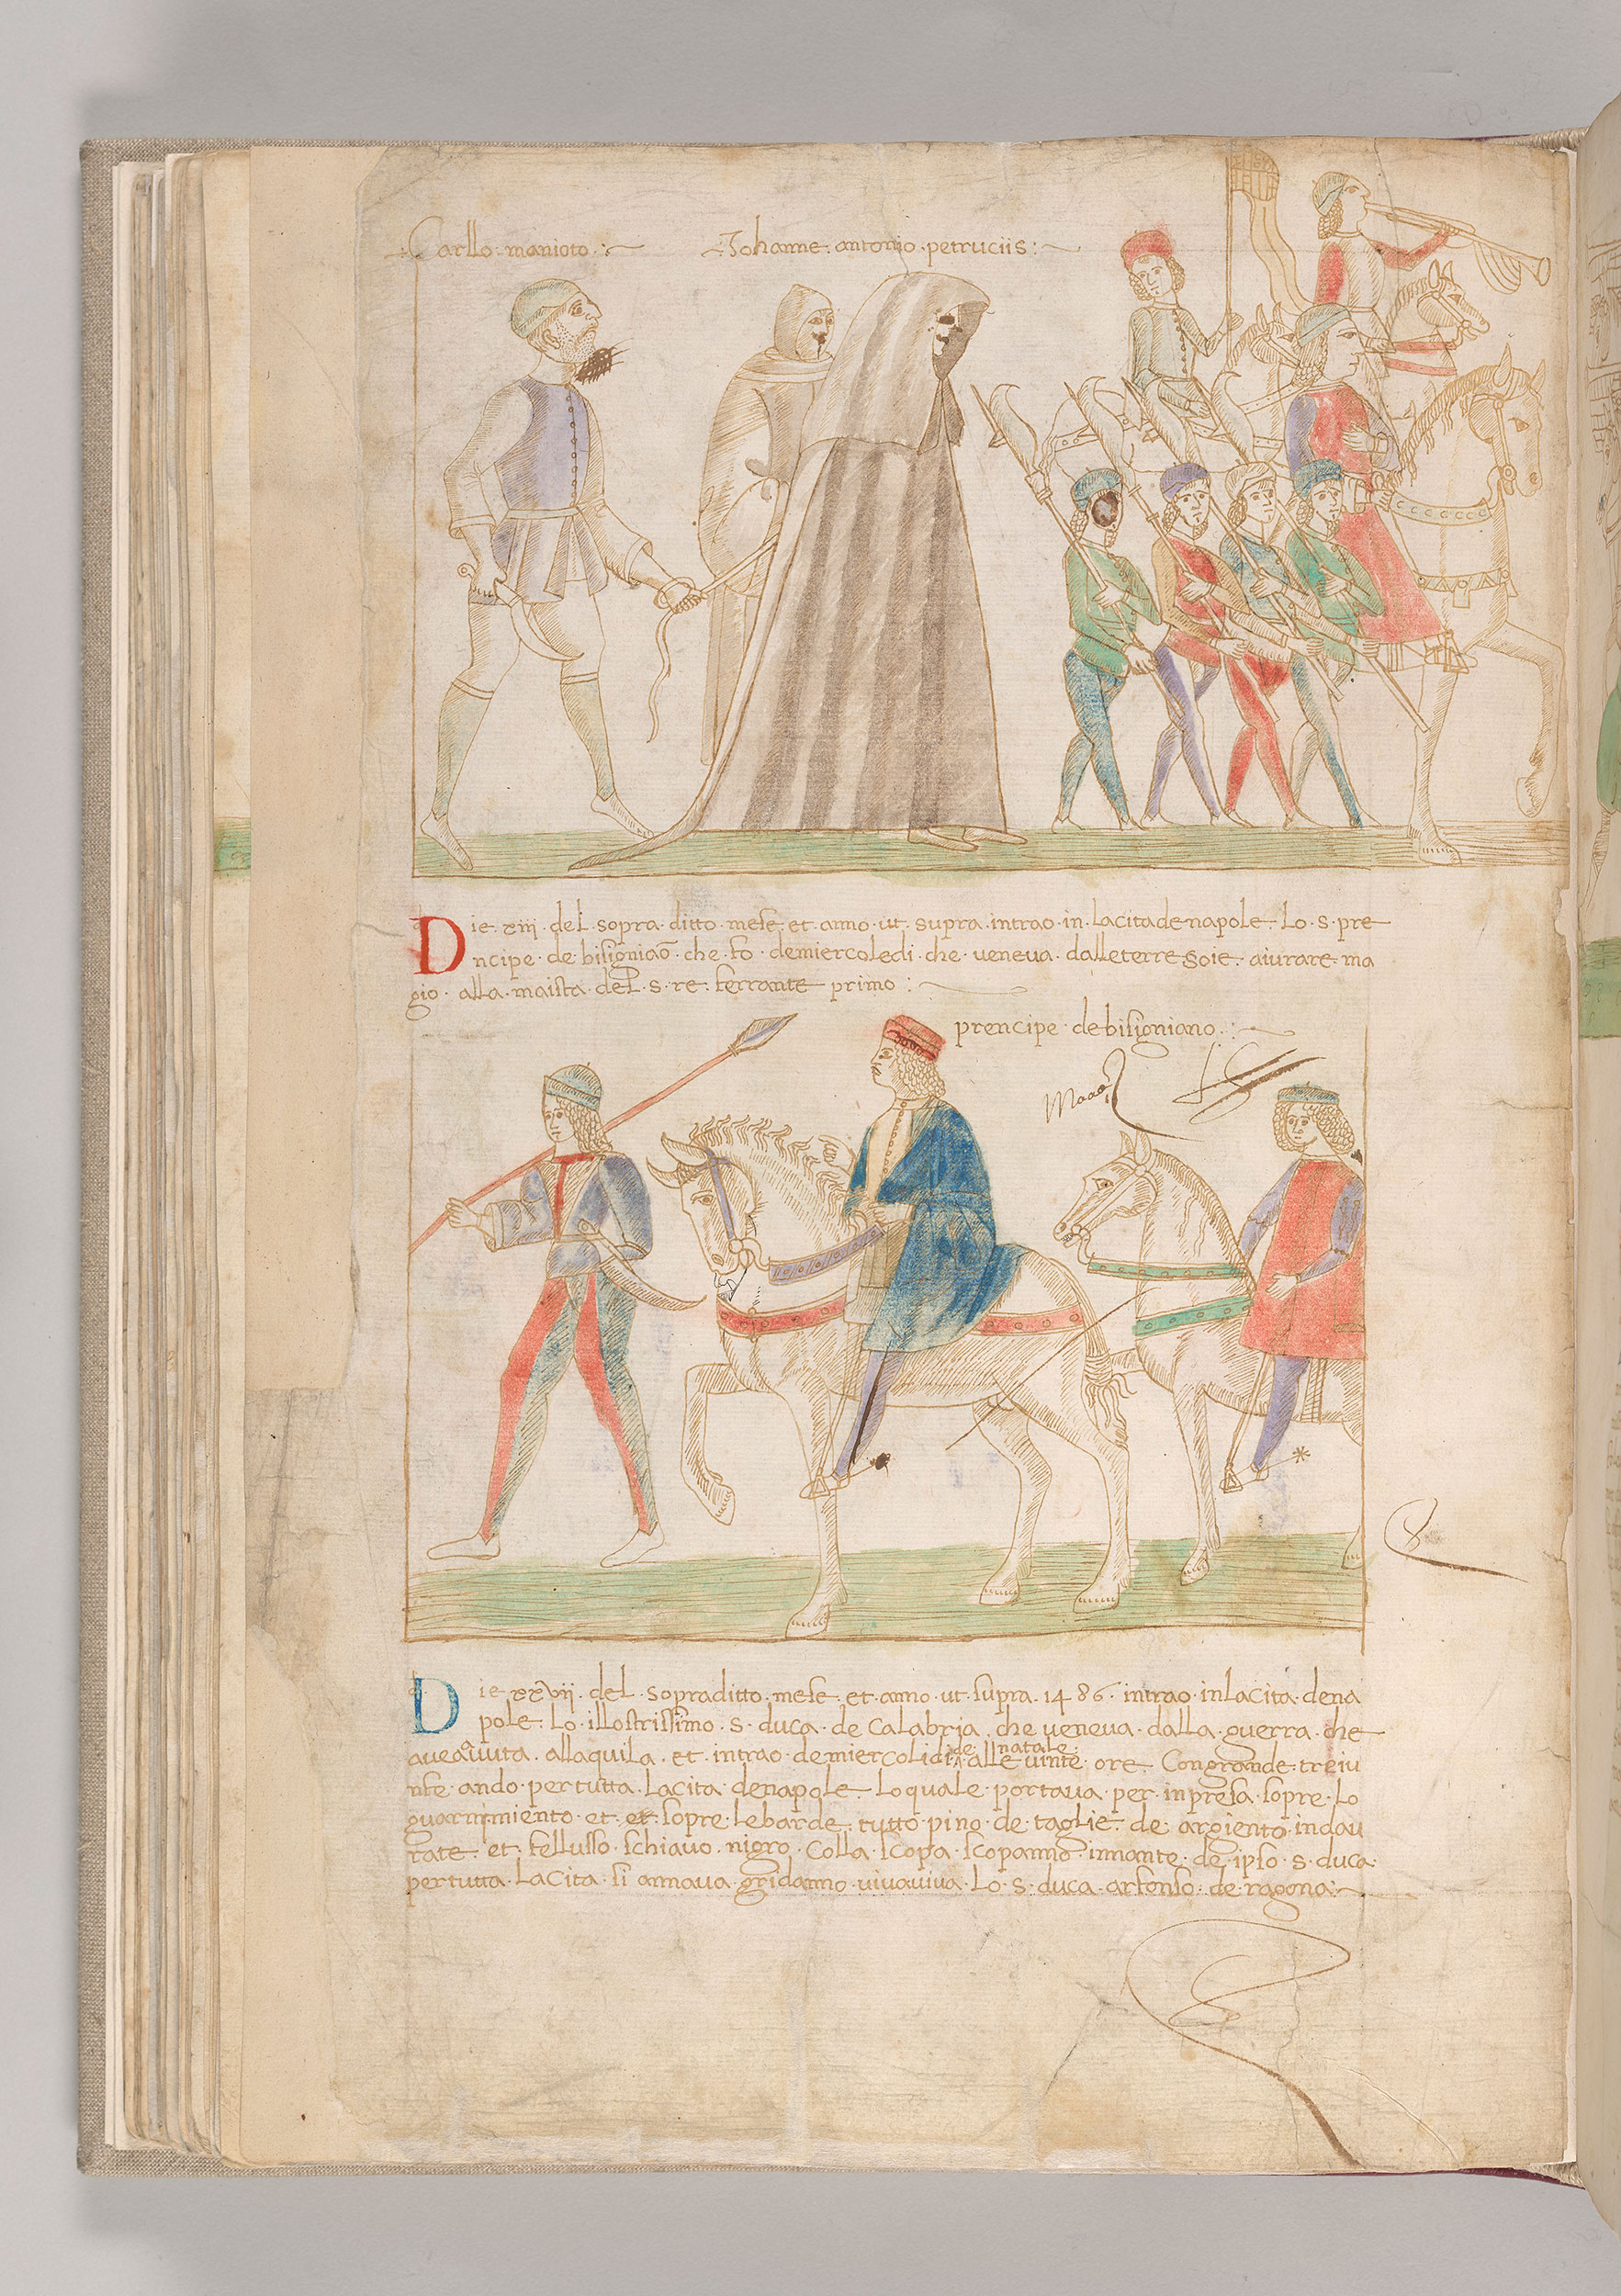 Carllo · manioto
Johanne · antonio · petruciis :
Die · xiii · del · sopra · ditto · mese · et · anno · ut · supra · intrao · in · lacita denapole · Lo · s · pre
ncipe · de · bisigniaõ · che · fo · demiercoledi · che · veneva · dalleterre soie · aiurare · ma
gio · alla · maista · del · s · re · ferrante · primo :
prencipe · debisigniano :
Die xxvii · del · sopraditto · mese · et · anno · ut · supra · 1486 · intrao · inlacita · dena
pole · Lo · illostrissimo · s · duca · de calabria · che veneva · dalla · guerra · che
de natale
avea avuta · allaquila · et · intrao · demiercolidi · alle vinte · ore · Congrande · treiu
nfe · ando · pertutta · lacita · denapole · Loquale · portava · per · inpresa · sopre · lo
guarnimiento · et · sopre · lebarde · tutto · pino · de · taglie · de · argiento · indau
rate · et · fellusso · schiavo · nigro · Colla · scopa · scopanno · innante · de · ipso · s · duca ·
pertutta · lacita · si annava · gridanno · vivaviva · Lo · s · duca · arfonso · de · ragona :